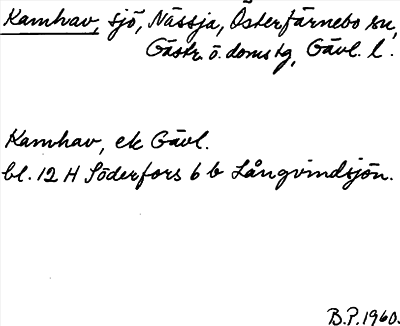 Kamhav, sjö, Nässja, Österfärnebo sn,
Gästr. ö. domstg, Gävl. l.
Kamhav, ek Gävl.
bl. 12 H Söderfors 6 b Långvindsjön.
B.P. 1960.